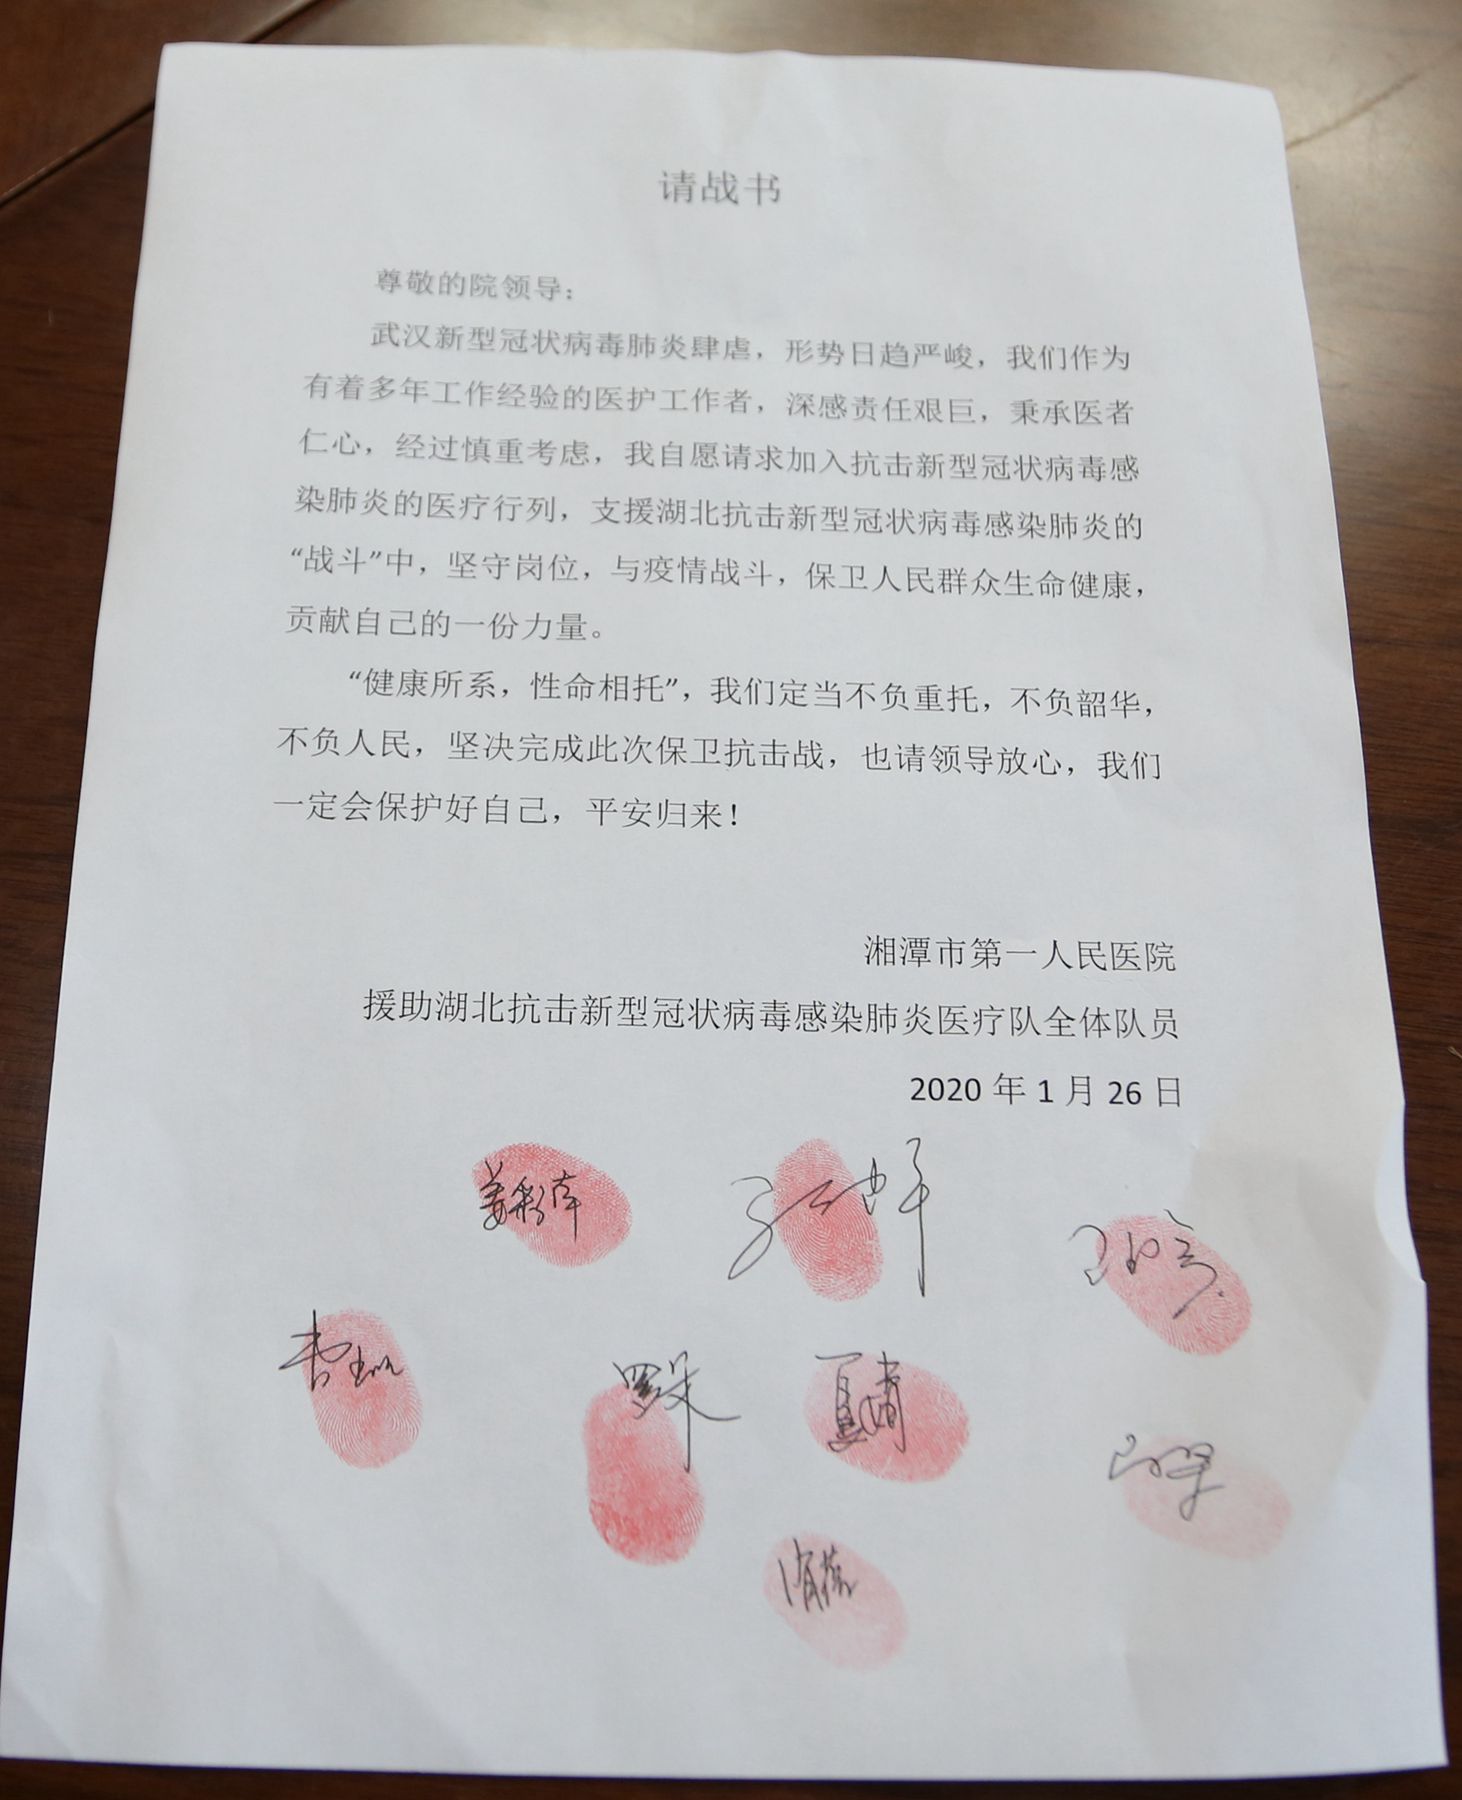 请战书
尊敬的院领导：
武汉新型冠状病毒肺炎肆虐，形势日趋严峻，我们作为
有着多年工作经验的医护工作者，深感责任艰巨，秉承医者
仁心，经过慎重考虑，我自愿请求加入抗击新型冠状病毒感
染肺炎的医疗行列，支援湖北抗击新型冠状病毒感染肺炎的
“战斗”中，坚守岗位，与疫情战斗，保卫人民群众生命健康，
贡献自己的一份力量。
“健康所系，性命相托”，我们定当不负重托，不负韶华，
不负人民，坚决完成此次保卫抗击战，也请领导放心，我们
一定会保护好自己，平安归来！
湘潭市第一人民医院
援助湖北抗击新型冠状病毒感染肺炎医疗队全体队员
2020 年 1 月 26 日